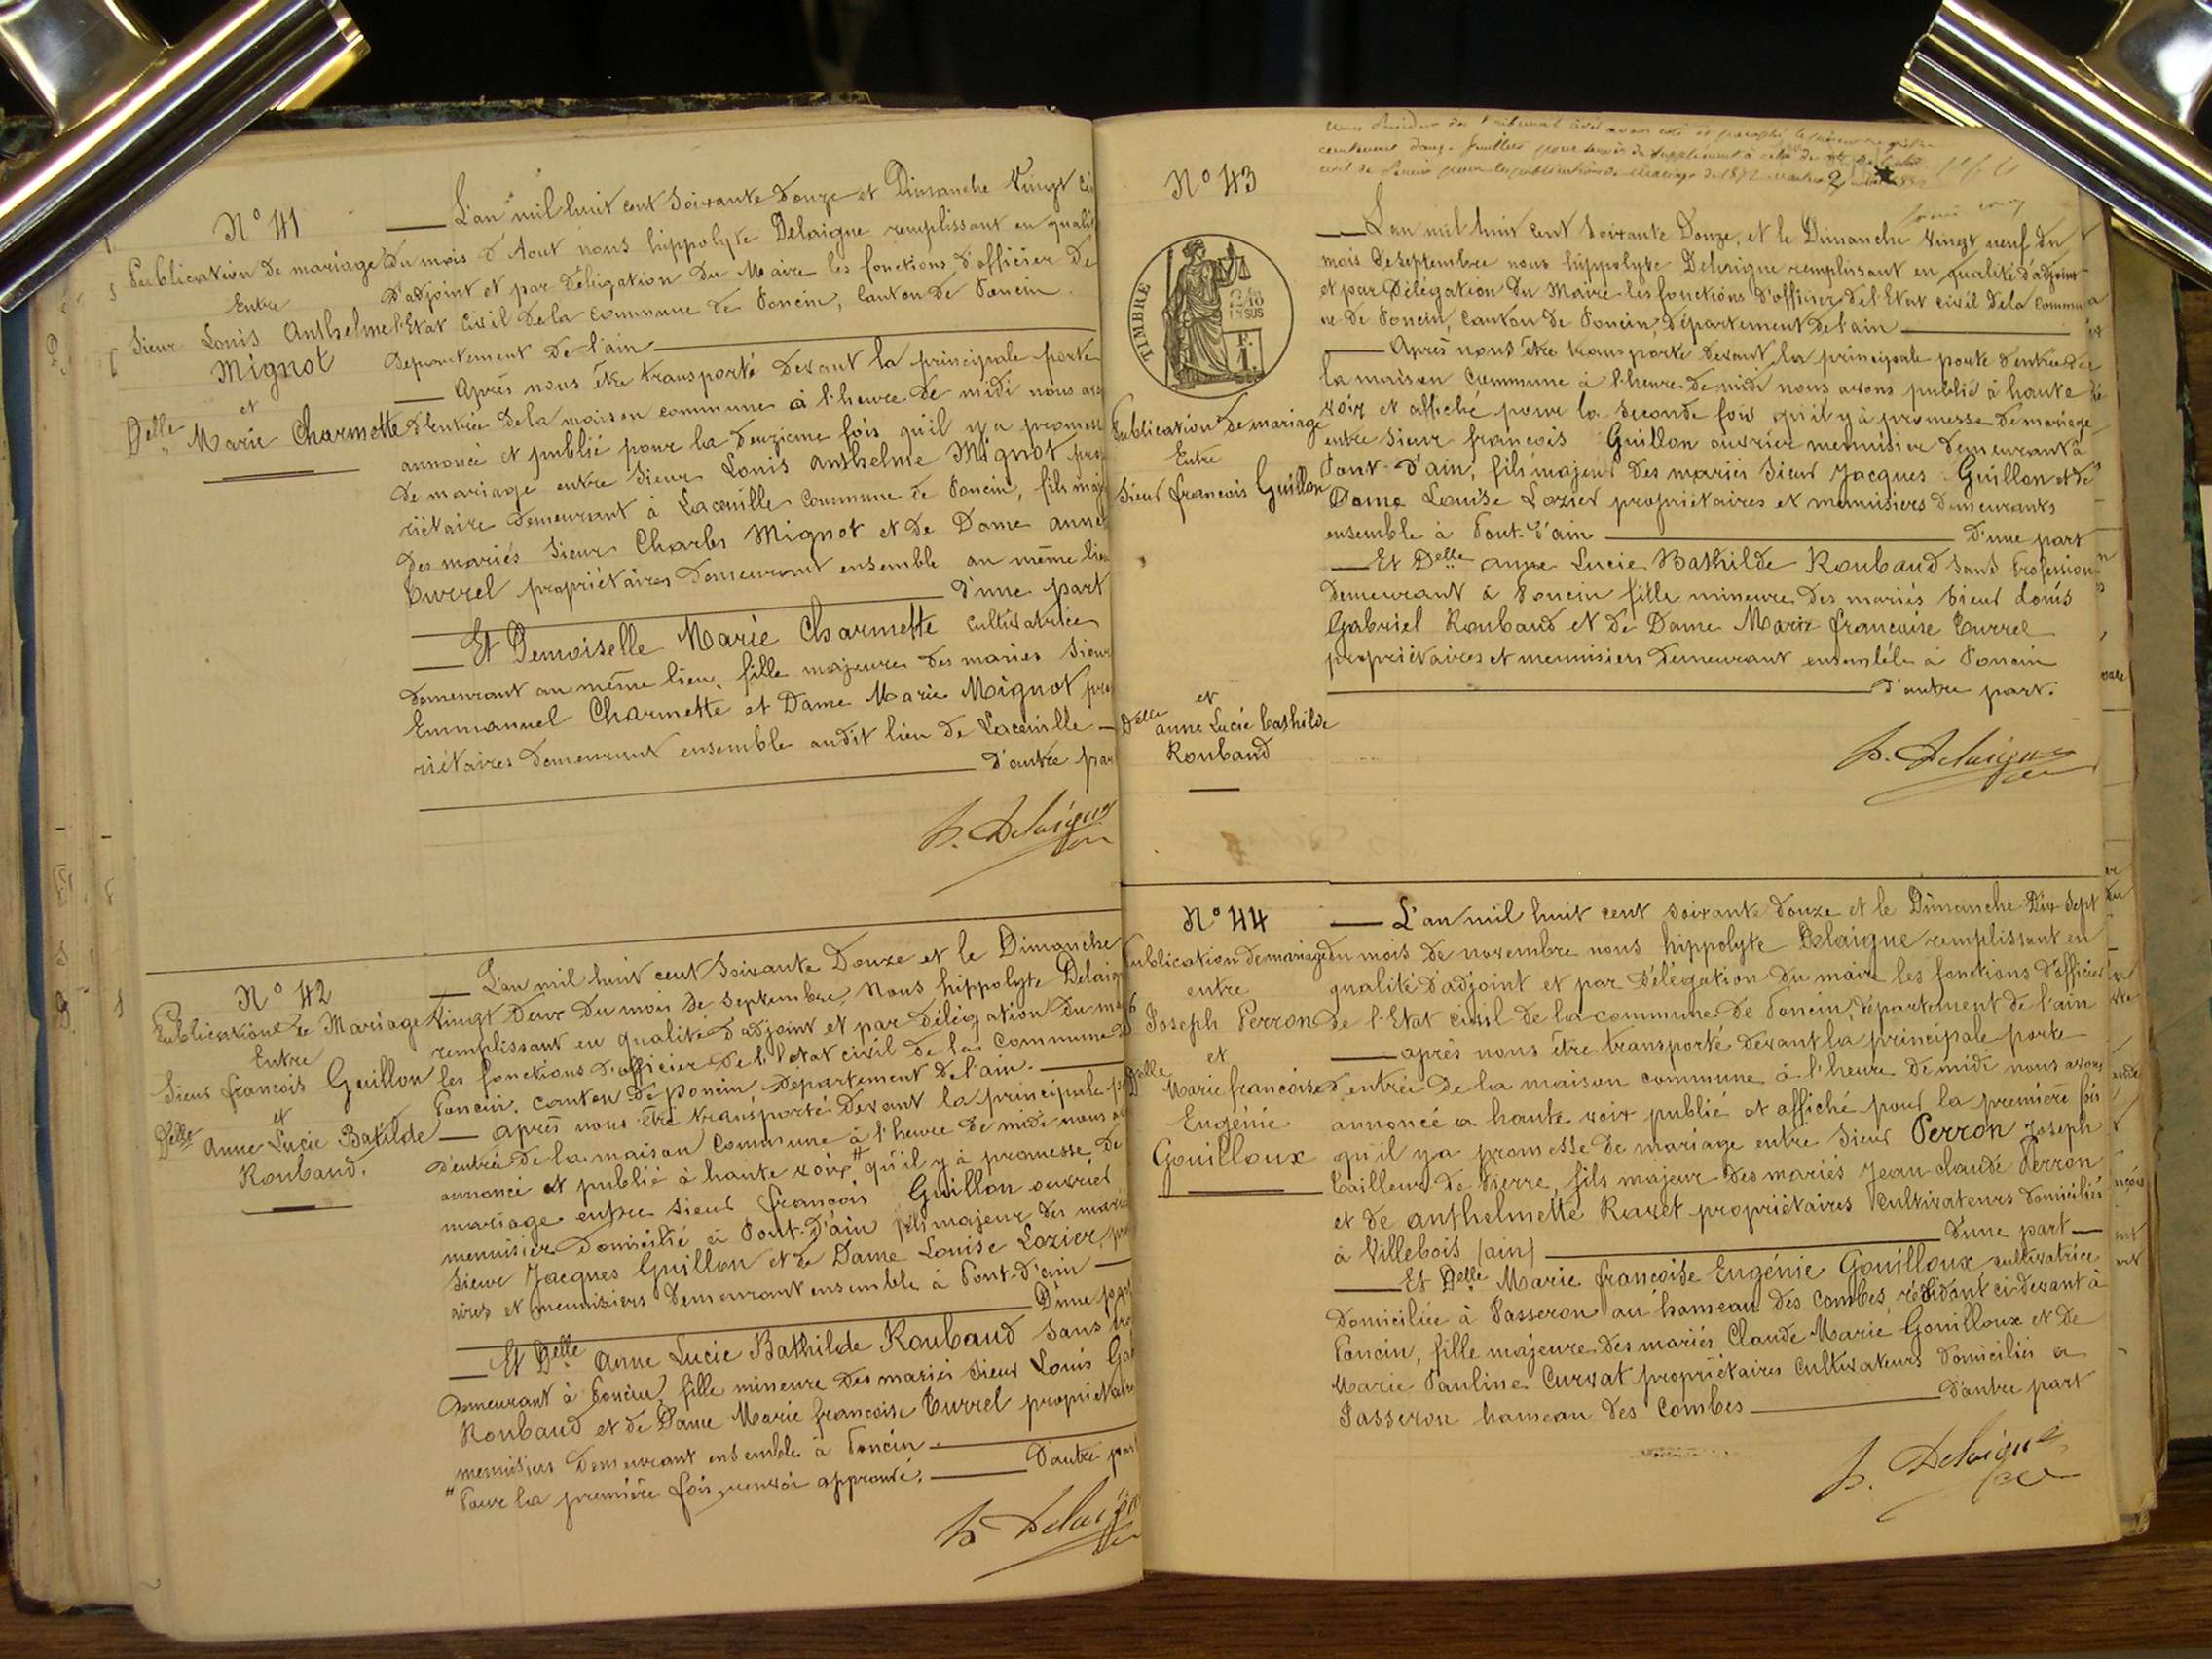 N° 41
Publication de mariage
Entre
Sieur Louis Anthelme
Mignot
et
Delle Marie Charmette
L'an mil huit cent soixante Douze et Dimanche Vingt
du mois d'Aout nous hippolyte Delaigue remplissant en qualité
d'adjoint et par Délégation du Maire les fonctions d'officier de
l'Etat Civil de la commune de Poncin, Canton de Poncin
département de l'ain
Après nous être transporté devant la principale porte
d'entrée de la maison commune à l'heure de midi nous
annoncé et publié pour la deuzieme fois qu'il y a promesse
de mariage entre Sieur Louis anthelme Mignot pro
riétaire demeurant à Lacueille commune de Poncin, fils maj
des mariés Sieur Charles Mignot et de Dame anne
Curvel propriétaires demeurant ensemble au même lieu
d'une part
Et Demoiselle Marie Charmette cultivatrice
demeurant au même lieu, fille majeure des mariés Sieur
Emmanuel Charmette et Dame Marie Mignot pro
riétaires demeurant ensemble audit lieu de Lacueille
d'autre par
h. Delaigue
N° 42
Publication de Mariage
Entre
Sieur francois Guillon
et
Delle Anne Lucie Batilde
Roubaud.
L'an mil huit cent Soixante Douze et le Dimanche
Vingt Deux du mois de septembre, Nous hippolyte Delaig
remplissant en qualité d'adjoint et par délégation du
les fonctions d'officier de l'Etat civil de la commune
Poncin, canton de Poncin, département de l'ain.
après nous être transporté devant la principale
d'entrée de la maison commune à l'heure de midi nous
annoncé et publié à haute voix # qu'il y à promesse de
mariage entre sieur francois Guillon ouvrier
menuisier domicilié à Pont-d'ain fils majeur des
Sieur Jacques Guillon et de Dame Louise Lozier,
aires et menuisiers demeurant ensemble à Pont-d'ain
D'une part
Et Delle Anne Lucie Bathilde Roubaud sans
demeurant à Poncin, fille mineure des mariés Sieur Louis Gab
Roubaud et de Dame Marie francoise Curvel propriétaires
menuisiers demeurant ensemble à Poncin
D'autre part
# Pour la première fois, renvoi approuvé.
h Delaigue
N° 43
TIMBRE
Publication de mariage
Entre
Sieur francois Guillon
et
Delle anne Lucie bathilde
Roubaud
L'an mil huit cent soixante Douze, et le Dimanche Vingt neuf du
mois de septembre nous hippolyte Delaigue remplissant en qualité d'adjoint
et par Délégation du Maire les fonctions d'officier de l'Etat civil de la commu
ne de Poncin, canton de Poncin, département de l'ain
Après nous être transporté devant la principale porte d'entrée de
la maison commune à l'heure de midi nous avons publié à haute
voix et affiché pour la seconde fois qu'il y à promesse de mariage
entre sieur francois Guillon ouvrier menuisier demeurant à
Pont-d'ain, fils majeur des mariés Sieur Jacques Guillon et de
Dame Louise Lozier propriétaires et menuisiers demeurants
ensemble à Pont-d'ain
D'une part
Et Delle anne Lucie Bathilde Roubaud sans Profession
demeurant à Poncin fille mineure des mariés Sieur Louis
Gabriel Roubaud et de Dame Marie francoise Curvel
propriétaires et menuisiers demeurant ensemble à Poncin
d'autre part.
h. Delaigue
N° 44
Publication de mariage
entre
Joseph Perron
et
Delle
Marie francoise
Eugénie
Gouilloux
L'an mil huit cent soixante douze et le Dimanche Dix Sept
du mois de novembre nous hippolyte Delaigue remplissant en
qualité d'adjoint et par délégation du maire les fonctions d'officier
de l'Etat civil de la commune de Poncin, département de l'ain
après nous être transporté devant la principale porte
d'entrée de la maison commune à l'heure de midi nous avons
annoncé a haute voix publié et affiché pour la première fois
qu'il y a promesse de mariage entre Sieur Perron Joseph
tailleur de Pierre, fils majeur des mariés Jean claude Perron
et de anthelmette Ravet propriétaires cultivateurs domiciliés
à Villebois (ain)
d'une part
Et Delle Marie francoise Eugénie Gouilloux cultivatrice
domiciliée à Jasseron au hameau des Combes, résidant ci-devant à
Poncin, fille majeure des mariés Claude Marie Gouilloux et de
Marie Pauline Curvat propriétaires cultivateurs domiciliés a
Jasseron hameau des Combes
d'autre part
h. Delaigue